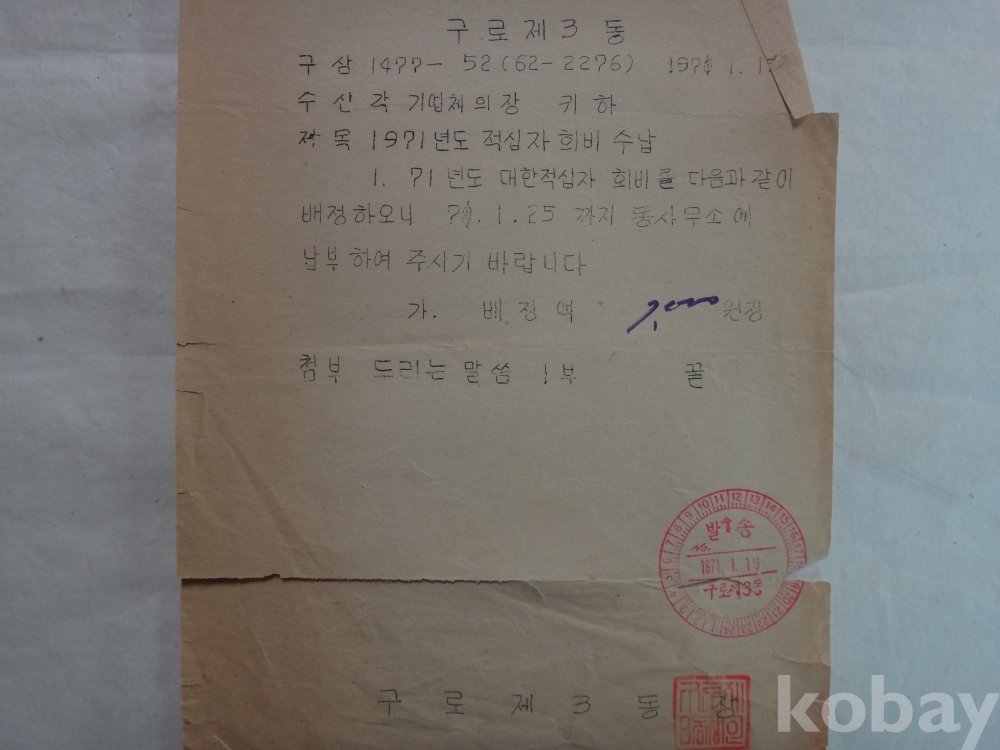 구로제3동
구삼 1477- 52(62-2276) 1971. 1.
수신 각 기업체의장 귀하
제목 1971년도 적십자 회비 수납
1. 71년도 대한적십자 회비를 다음과 같이
배정하오니 71.1.25 까지 동사무소에
납부하여 주시기 바랍니다
가. 배정액 원정
첨부 드리는 말씀 1부 끝
발송
1971. 1. 19
구로제3동
구로제3동장
kobay